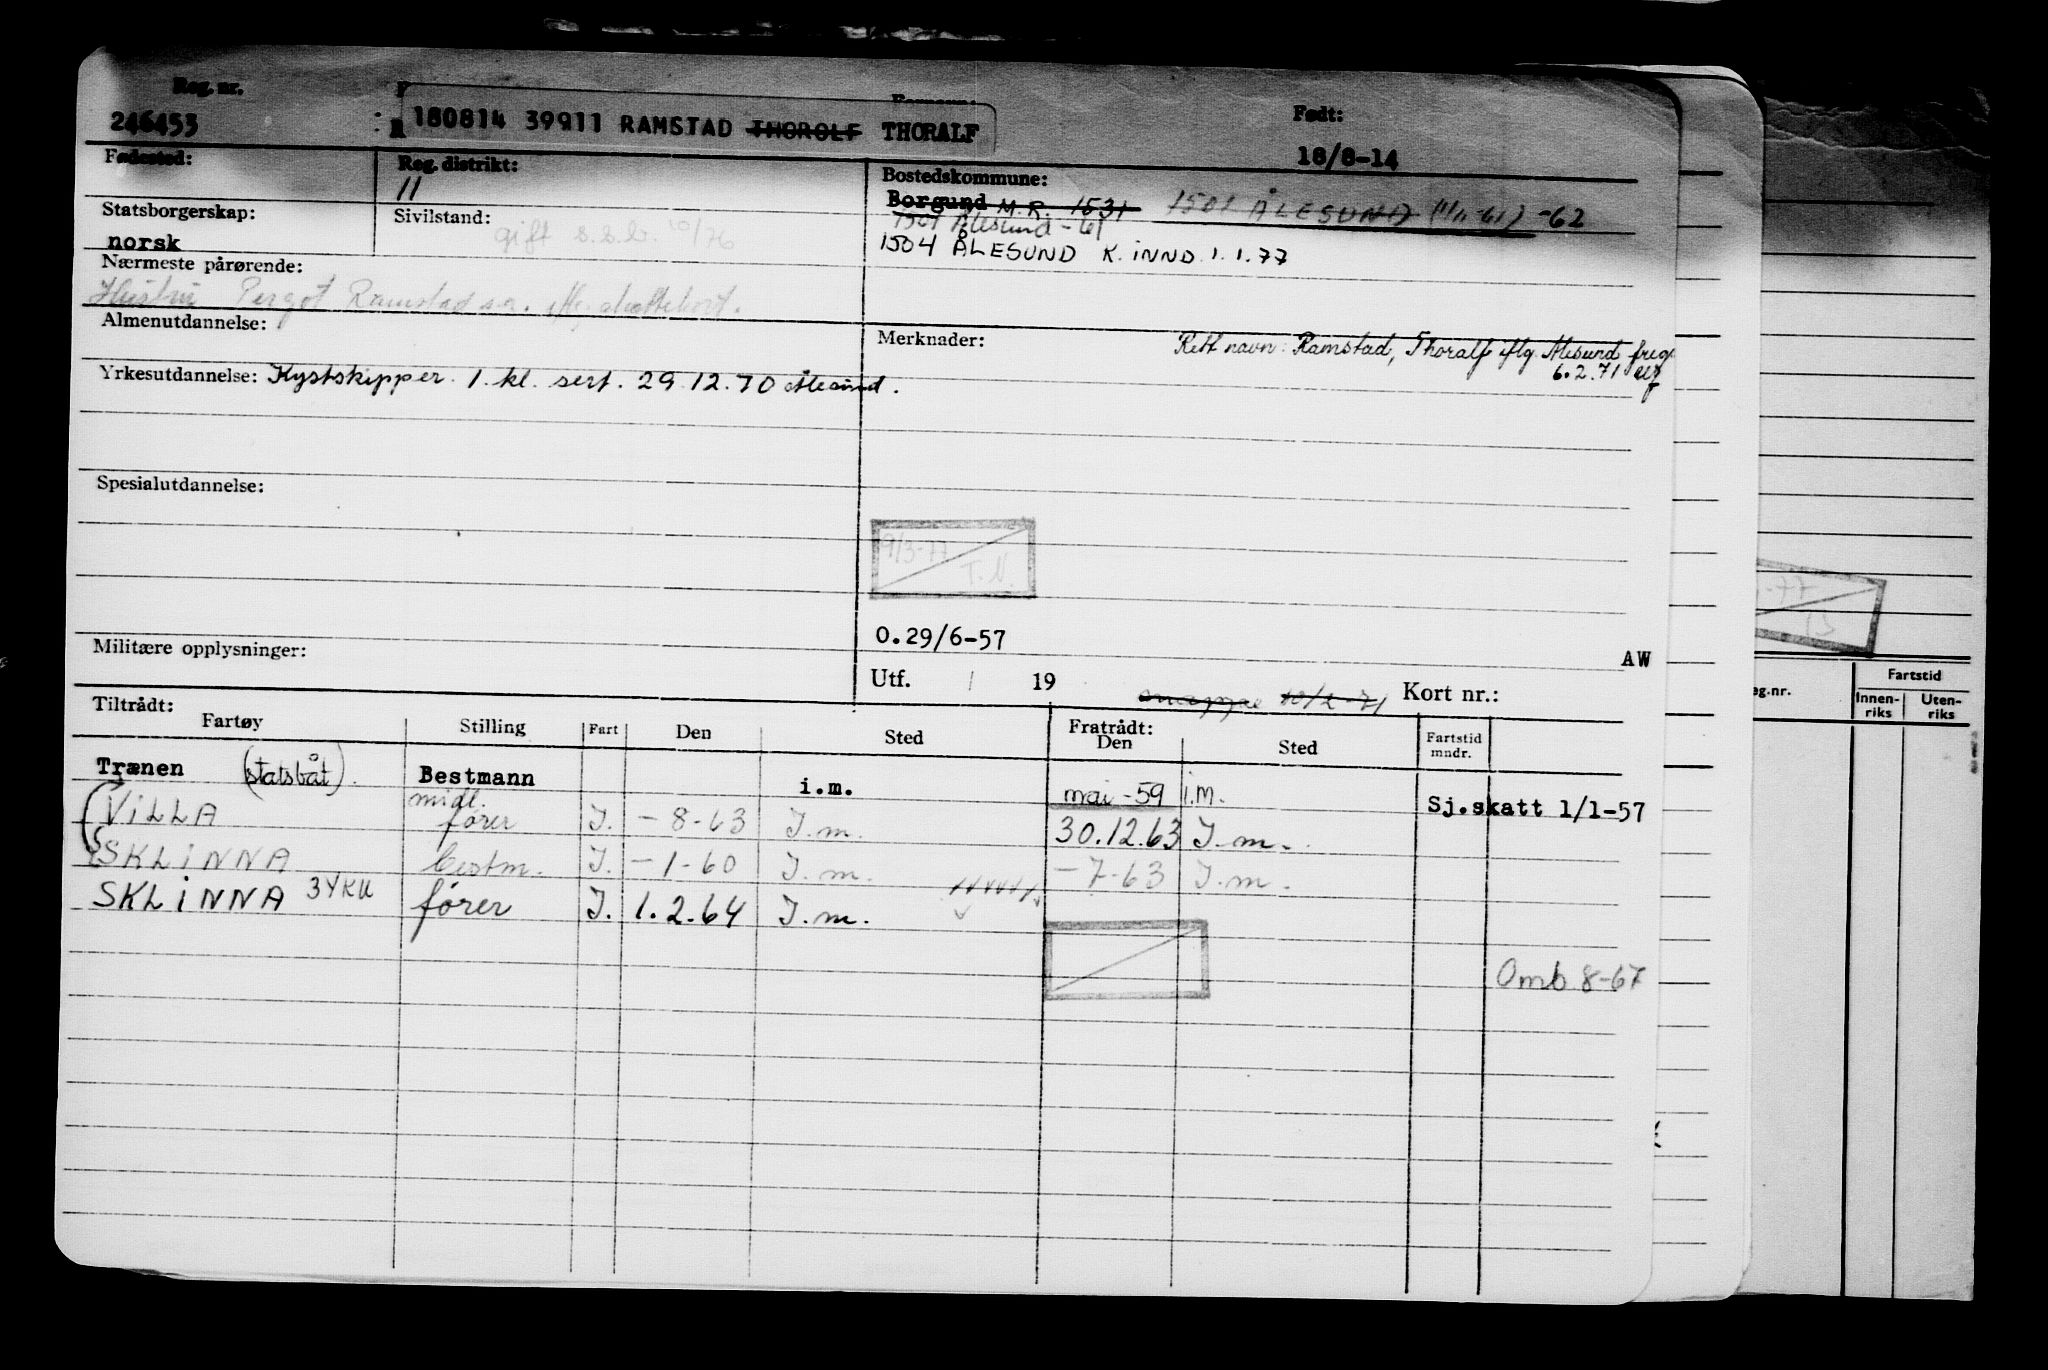 Reg. nr.
246453
180814 39911 RAMSTAD THOROLF THORALF
Født:
18/8-14
Fødested:
Reg. distrikt:
11
Bostedskommune:
Borgund M.R. 1531 1501 ÅLESUND (1/11-61) -62
1501 Ålesund -61
1504 ÅLESUND K. INND. 1.1.77
Statsborgerskap:
norsk
Sivilstand:
gift s.s.b. 10/76
Nærmeste pårørende:
Hustru Pergot Ramstad s.a.
Almenutdannelse:
Merknader:
Rett navn: Ramstad, Thoralf iflg. Ålesund
6.2.71
Yrkesutdannelse: Kystskipper 1. kl. sert. 29.12.70 Ålesund.
Spesialutdannelse:
9/3-77
T.N.
-77
O.29/6-57
AW
Militære opplysninger:
Utf. 19
mappe 10/2-71
Kort nr.:
Tiltrådt:
Fartøy Stilling Fart Den Sted
Fratrådt:
Den Sted
Fartstid
mndr.
g.nr.
Fartstid
Innen-
riks
Uten-
riks
Trænen (statsbåt). Bestmann i.m. mai -59 i.m. Sj.skatt 1/1-57
VILLA midl. fører I. -8-63 I.m. 30.12.63 I.m.
SKLINNA bestm. I. -1-60 I.m. -7-63 I.m.
SKLINNA 3YKU fører I. 1.2.64 I.m.
Omb 8-67